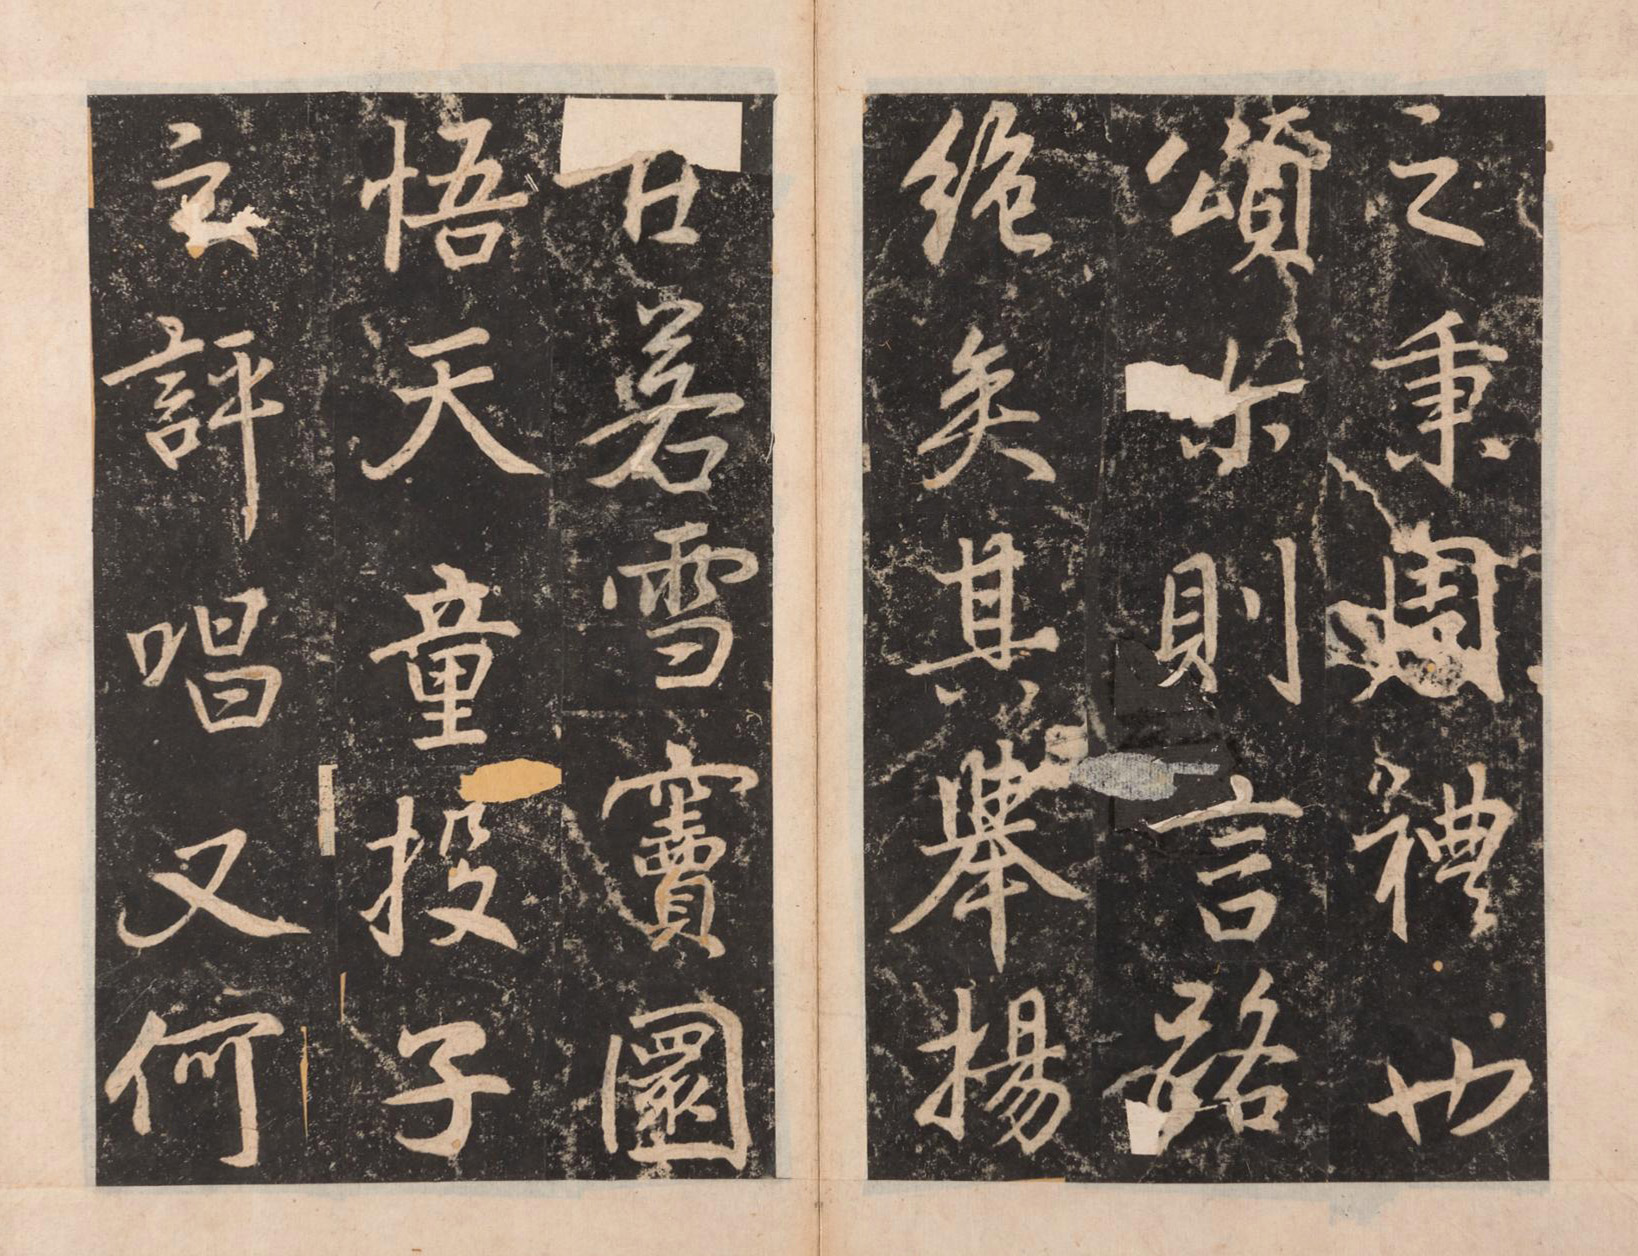 之秉周禮也
頌尓則言路
絶矣其舉揚
若雪竇圜
悟天童投子
之評唱又何